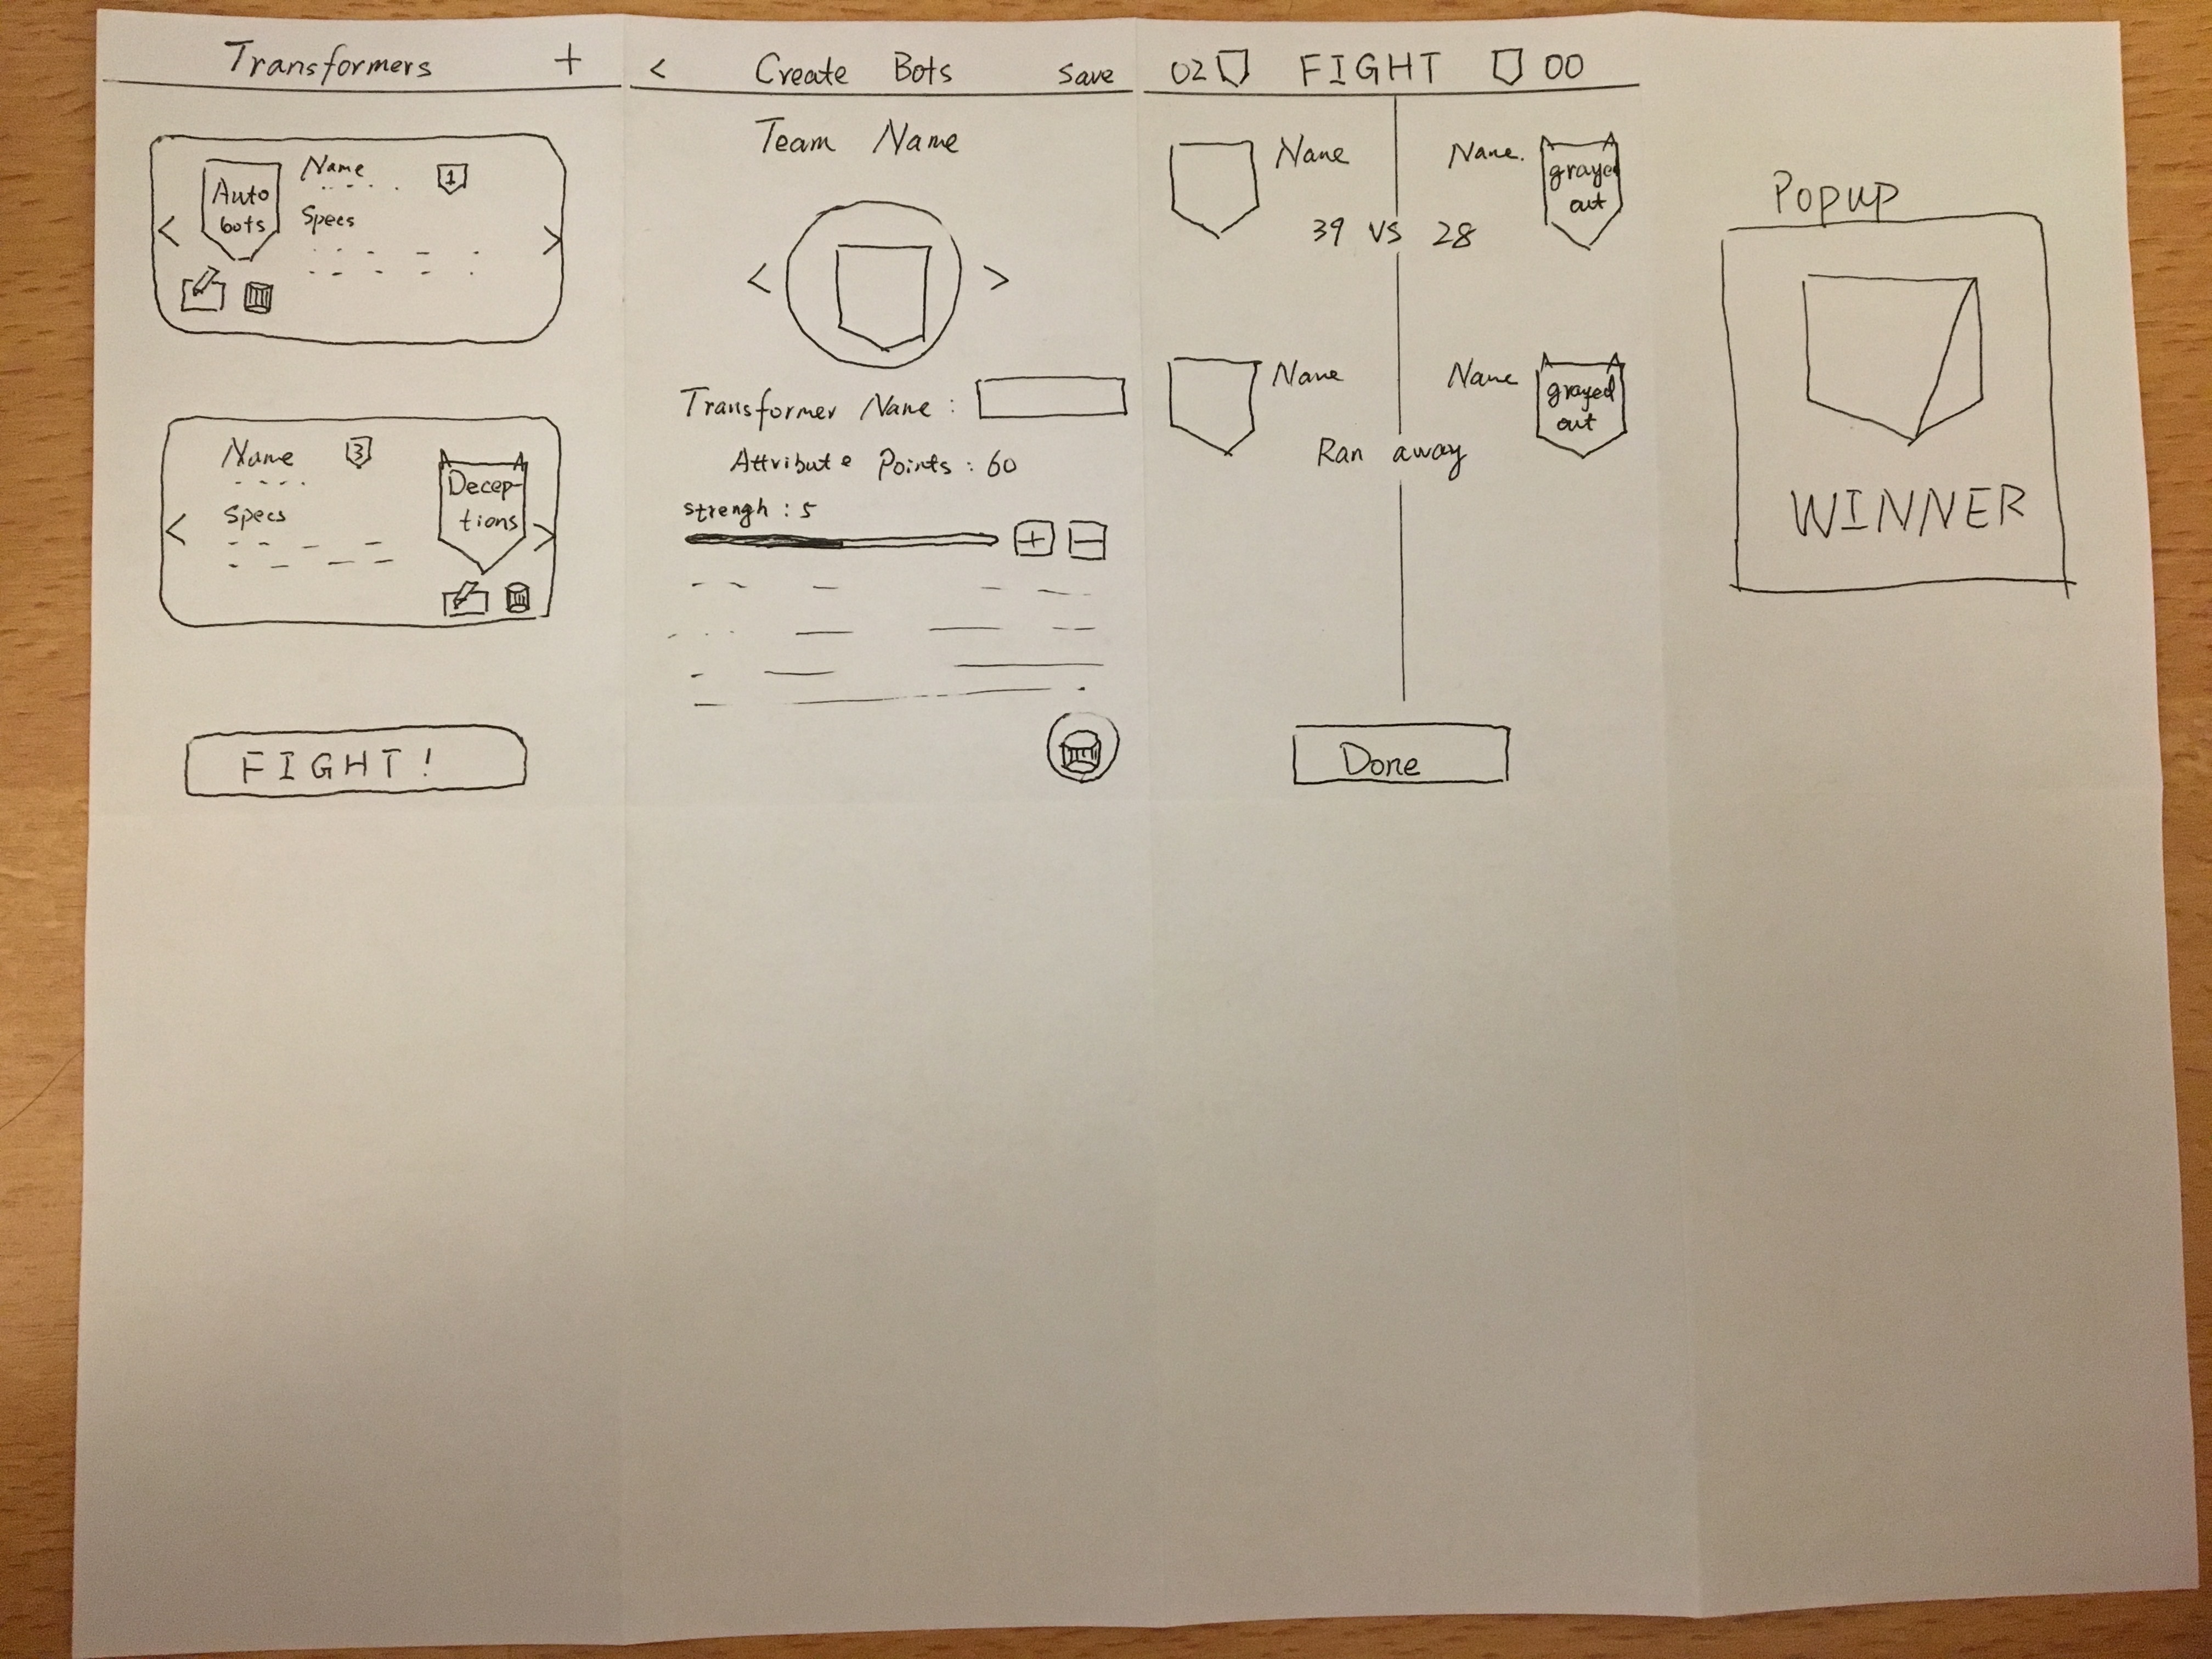 Transformers +
Auto
bots
Name
1
Specs
< >
Name
3
Specs
Decep-
tions
< >
FIGHT!
< Create Bots Save
Team Name
< >
Transformer Name :
Attribute Points : 60
Strengh : 5
+ -
02 FIGHT 00
Name Name.
grayed
out
39 VS 28
Name Name
grayed
out
Ran away
Done
Popup
WINNER